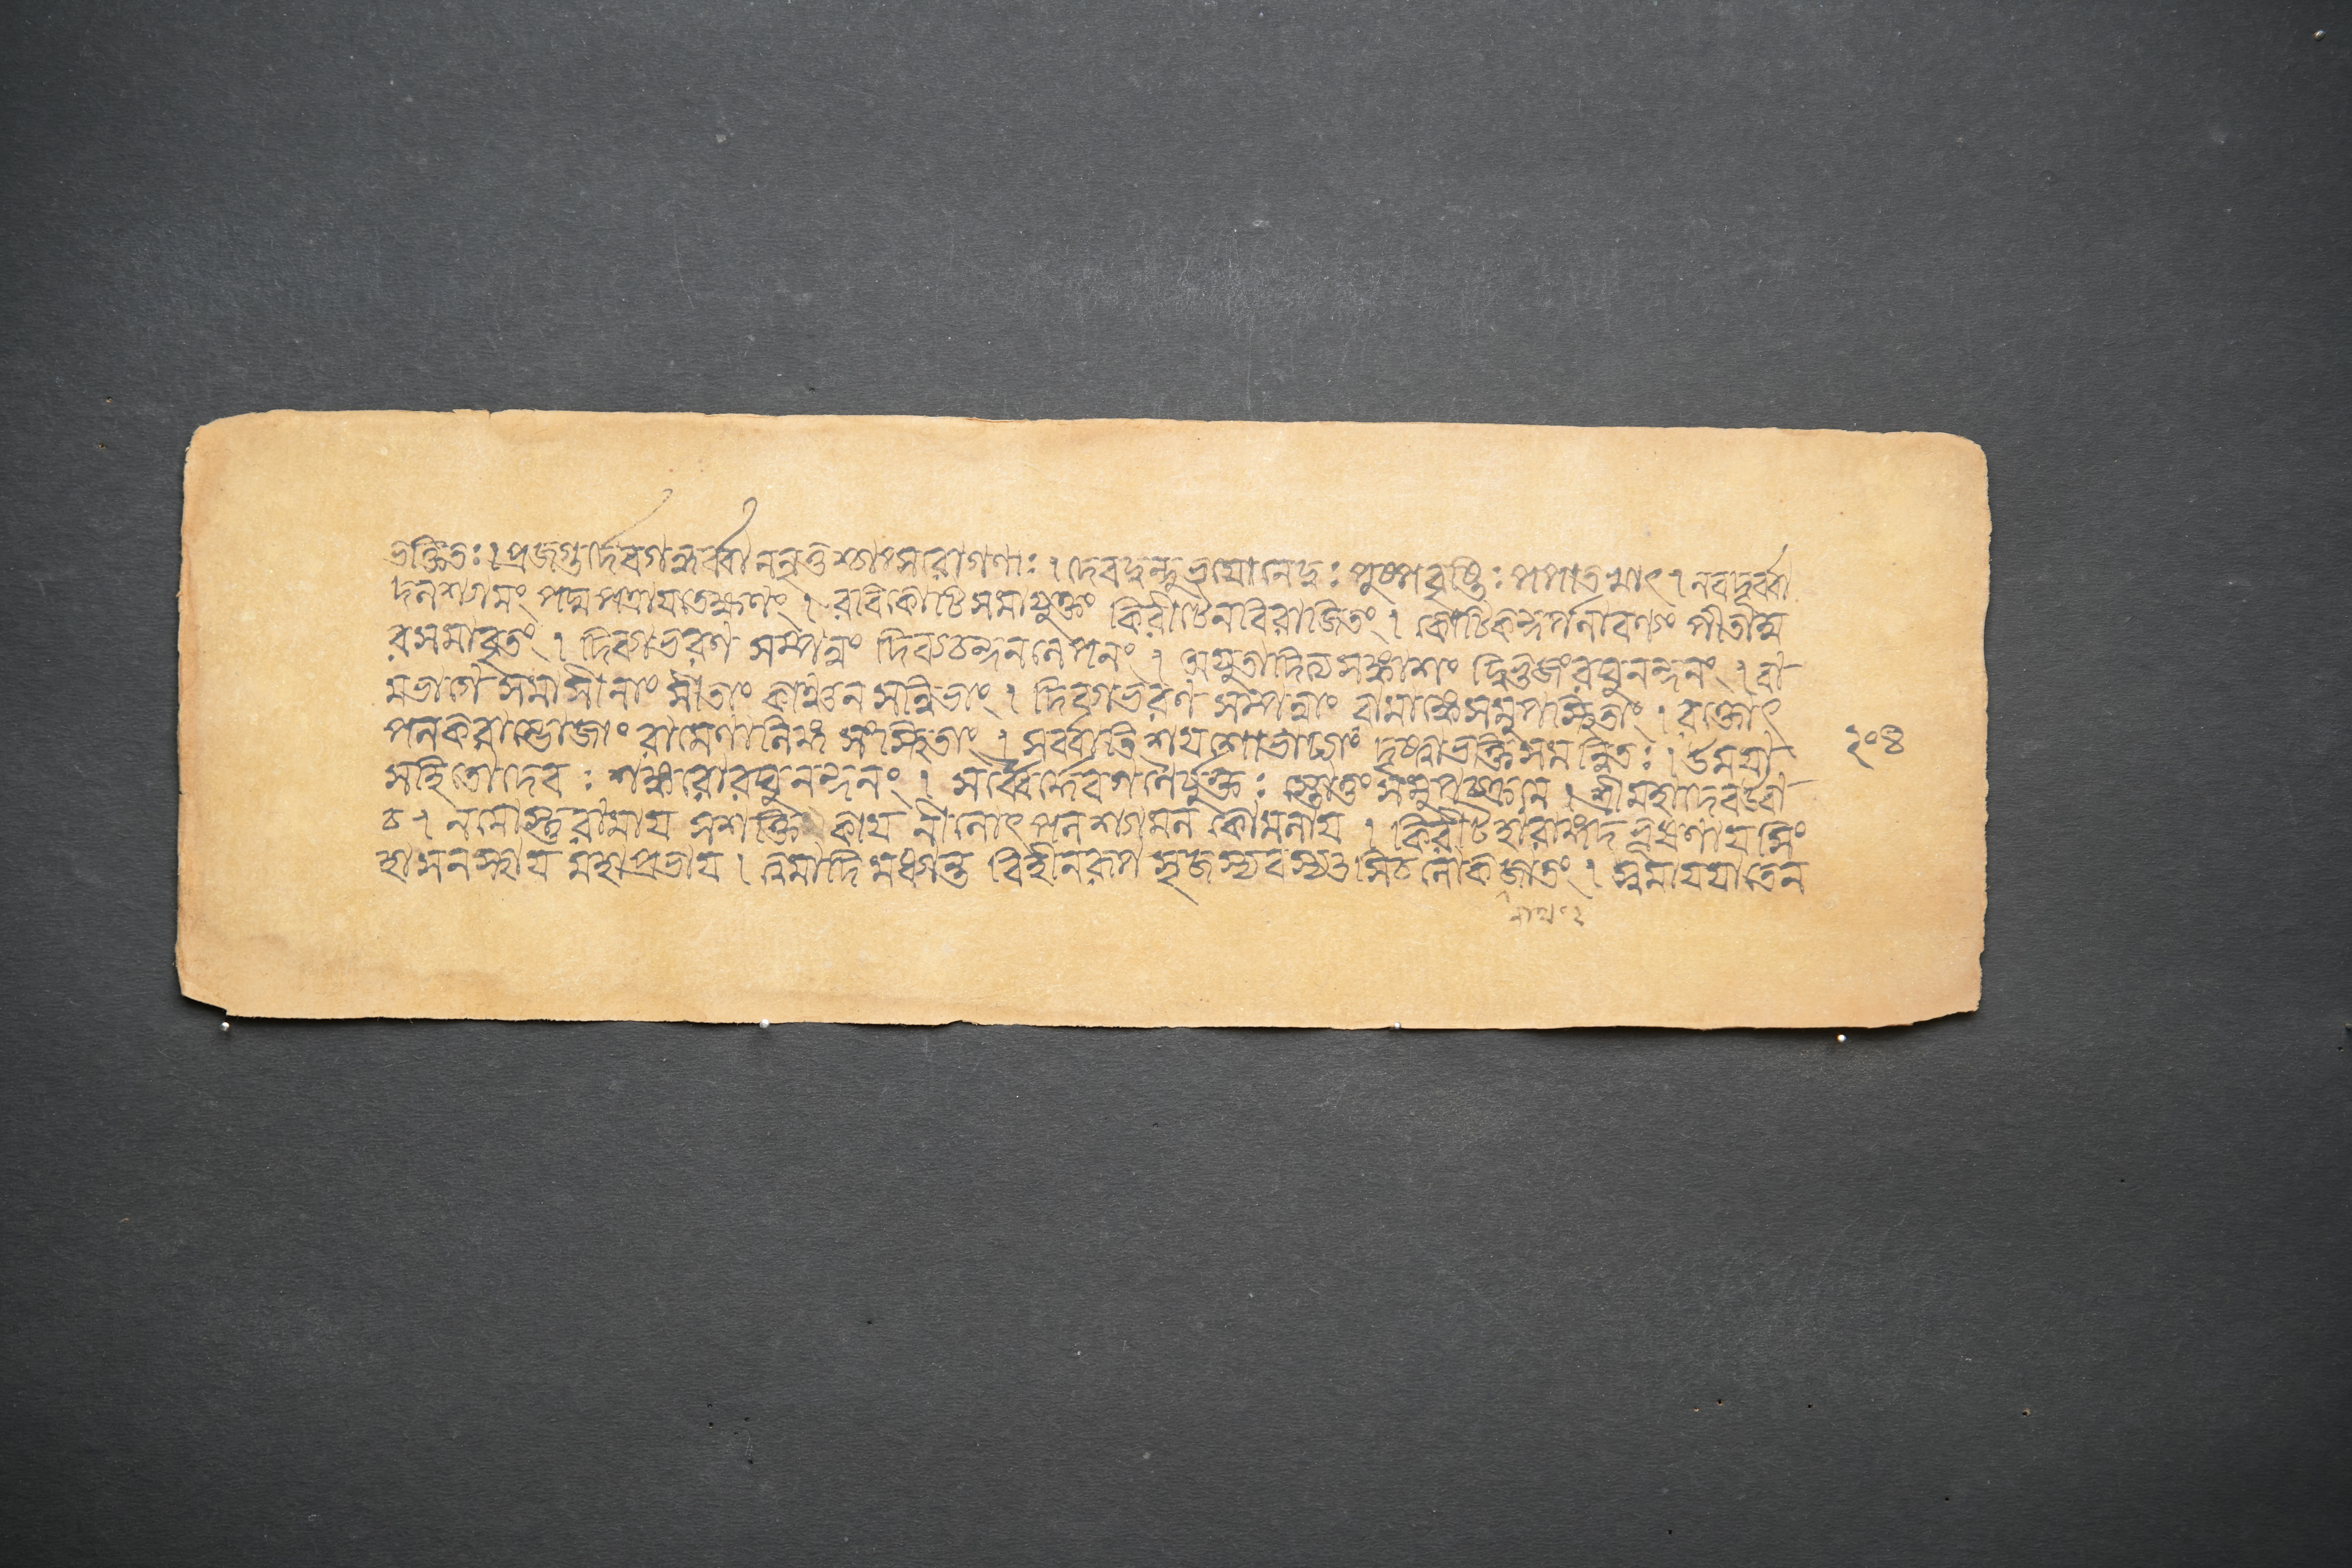 ভক্তিতঃ। প্রজগুর্দেবগন্ধর্ব্বা ননৃতুশ্চাপ্সরাগণাঃ। দেবদুন্দুভয়ো নেদুঃ পুষ্পবৃষ্টিঃ পপাতখাৎ। নবদূর্ব্বা
দলশ্যামং পদ্মপত্রায়তেক্ষণং। রবিকোটিসমাযুক্তং কিরীটেনবিরাজিতং। কোটিকন্দর্পলাবণ্যং পীতাম্ব
রসমাবৃতং। দিব্যাভরণ সম্পন্নং দিব্যচন্দনলেপনং। অযুতাদিত্যসঙ্কাশং দ্বিভুজংরঘুনন্দনং। বা
মভাগে সমাসীনাং সীতাং কাঞ্চন সন্নিভাং। দিব্যাভরণ সম্পন্নাং বামাঙ্কেসমুপস্থিতাং। রক্তোৎ
পলকরাম্ভোজাং রামেণালিঙ্গ্য সংস্থিতাং। সর্ব্বাতিশয়শোভাঢ্যং দৃষ্ট্বাভক্তিসমন্বিতঃ। উময়া
সহিতোদেবঃ শঙ্করোরঘুনন্দনং। সর্ব্বৈর্দেবগণৈর্যুক্তঃ স্তোতুং সমুপচক্রমে। শ্রীমহাদেবউবা
চ। নমোস্তু রামায় সশক্তিকায় নীলোৎপলশ্যামল কোমলায়। কিরীটহারাঙ্গদভূষণায়সিং
হাসনস্থায় মহাপ্রভায়। ত্বমাদিমধ্যান্ত বিহীনরূপ সৃজস্যবস্যৎসিচলোকজাতং। স্বমায়য়াতেন
২০৪